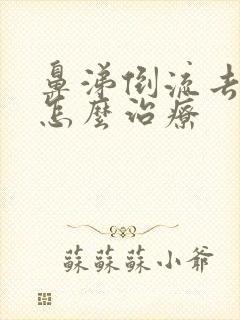 鼻涕倒流去
怎麼治療
蘇蘇蘇小爺